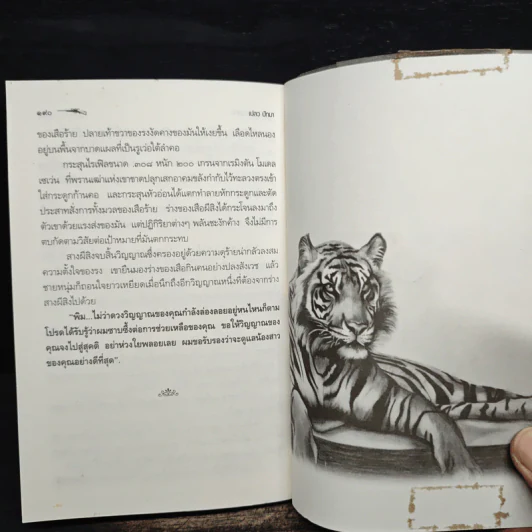 ๑๙๐
ของเสือร้าย ปลายเท้าขวาของรงงัดคางของมันให้เงยขึ้น เลือดไหลนอง
อยู่บนพื้นจากบาดแผลที่เป็นรูเว่อใต้ลำคอ
กระสุนไรเฟิลขนาด .๓๐๘ หนัก ๒๐๐ เกรนจากเรมิงตัน โมเดล
เซเว่น ที่พรานเฒ่าแห่งเขาชาดปลุกเสกอาคมขลังกำกับไว้ทะลวงตรงเข้า
ใส่กระดูกก้านคอ และกระสุนหัวอ่อนได้แตกทำลายหักกระดูกและตัด
ประสาทสั่งการทั้งมวลของเสือร้าย ร่างของเสือผีสิงได้กระโจนลงมาถึง
ตัวเขาด้วยแรงส่งของมัน แต่ปฏิกิริยาต่างๆ พลันชะงักค้าง จึงไม่มีการ
ตบกัดตามวิสัยต่อเป้าหมายที่มันตกกระทบ
สางผีสิงจบสิ้นวิญญาณซึ่งครองอยู่ด้วยความดุร้ายน่ากลัวลงสม
ความตั้งใจของรง เขายืนมองร่างของเสือกินคนอย่างปลงสังเวช แล้ว
ชายหนุ่มก็ถอนใจยาวเหยียดเมื่อนึกถึงอีกวิญญาณหนึ่งที่ต้องจากร่าง
สางผีสิงไปด้วย
"พิม...ไม่ว่าดวงวิญญาณของคุณกำลังล่องลอยอยู่หนไหนก็ตาม
โปรดได้รับรู้ว่าผมซาบซึ้งต่อการช่วยเหลือของคุณ ขอให้วิญญาณของ
คุณจงไปสู่สุคติ อย่าห่วงใยพลอยเลย ผมขอรับรองว่าจะดูแลน้องสาว
ของคุณอย่างดีที่สุด".